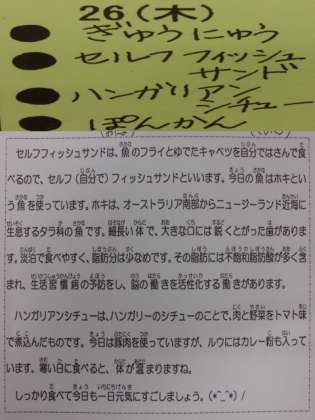 26(木)
● ぎゅうにゅう
● セルフフィッシュ
サンド
● ハンガリアン
シチュー
● ぽんかん
セルフフィッシュサンドは、魚のフライとゆでたキャベツを自分ではさんで食
べるので、セルフ(自分で)フィッシュサンドといいます。今日の魚はホキとい
う魚を使っています。ホキは、オーストラリア南部からニュージーランド近海に
生息するタラ科の魚です。細長い体で、大きな口には鋭くとがった歯がありま
す。淡泊で食べやすく、脂肪分は少なめです。その脂肪には不飽和脂肪酸が多く含
まれ、生活習慣病の予防をし、脳の働きを活性化する働きがあります。
ハンガリアンシチューは、ハンガリーのシチューのことで、肉と野菜をトマト味
で煮込んだものです。今日は豚肉を使っていますが、ルウにはカレー粉も入って
います。寒い日に食べると、体が温まりますね。
しっかり食べて今日も一日元気にすごしましょう。(*^_^*)/